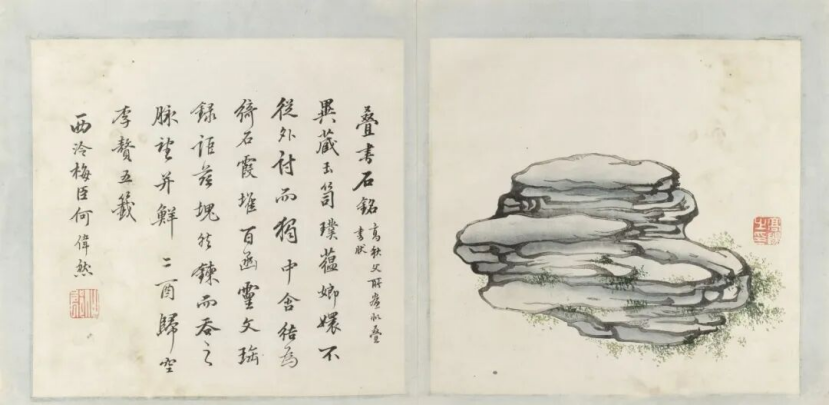 叠書石銘
高秋父所
叠書狀
異藏玉笥璞蘊嫏嬛不
從外討而獨中含結為
綺石霞堆百函靈文
録詎茲塊然鍊而吞之
脉望并鮮二酉歸空
李贅五籤
西泠梅臣何偉然